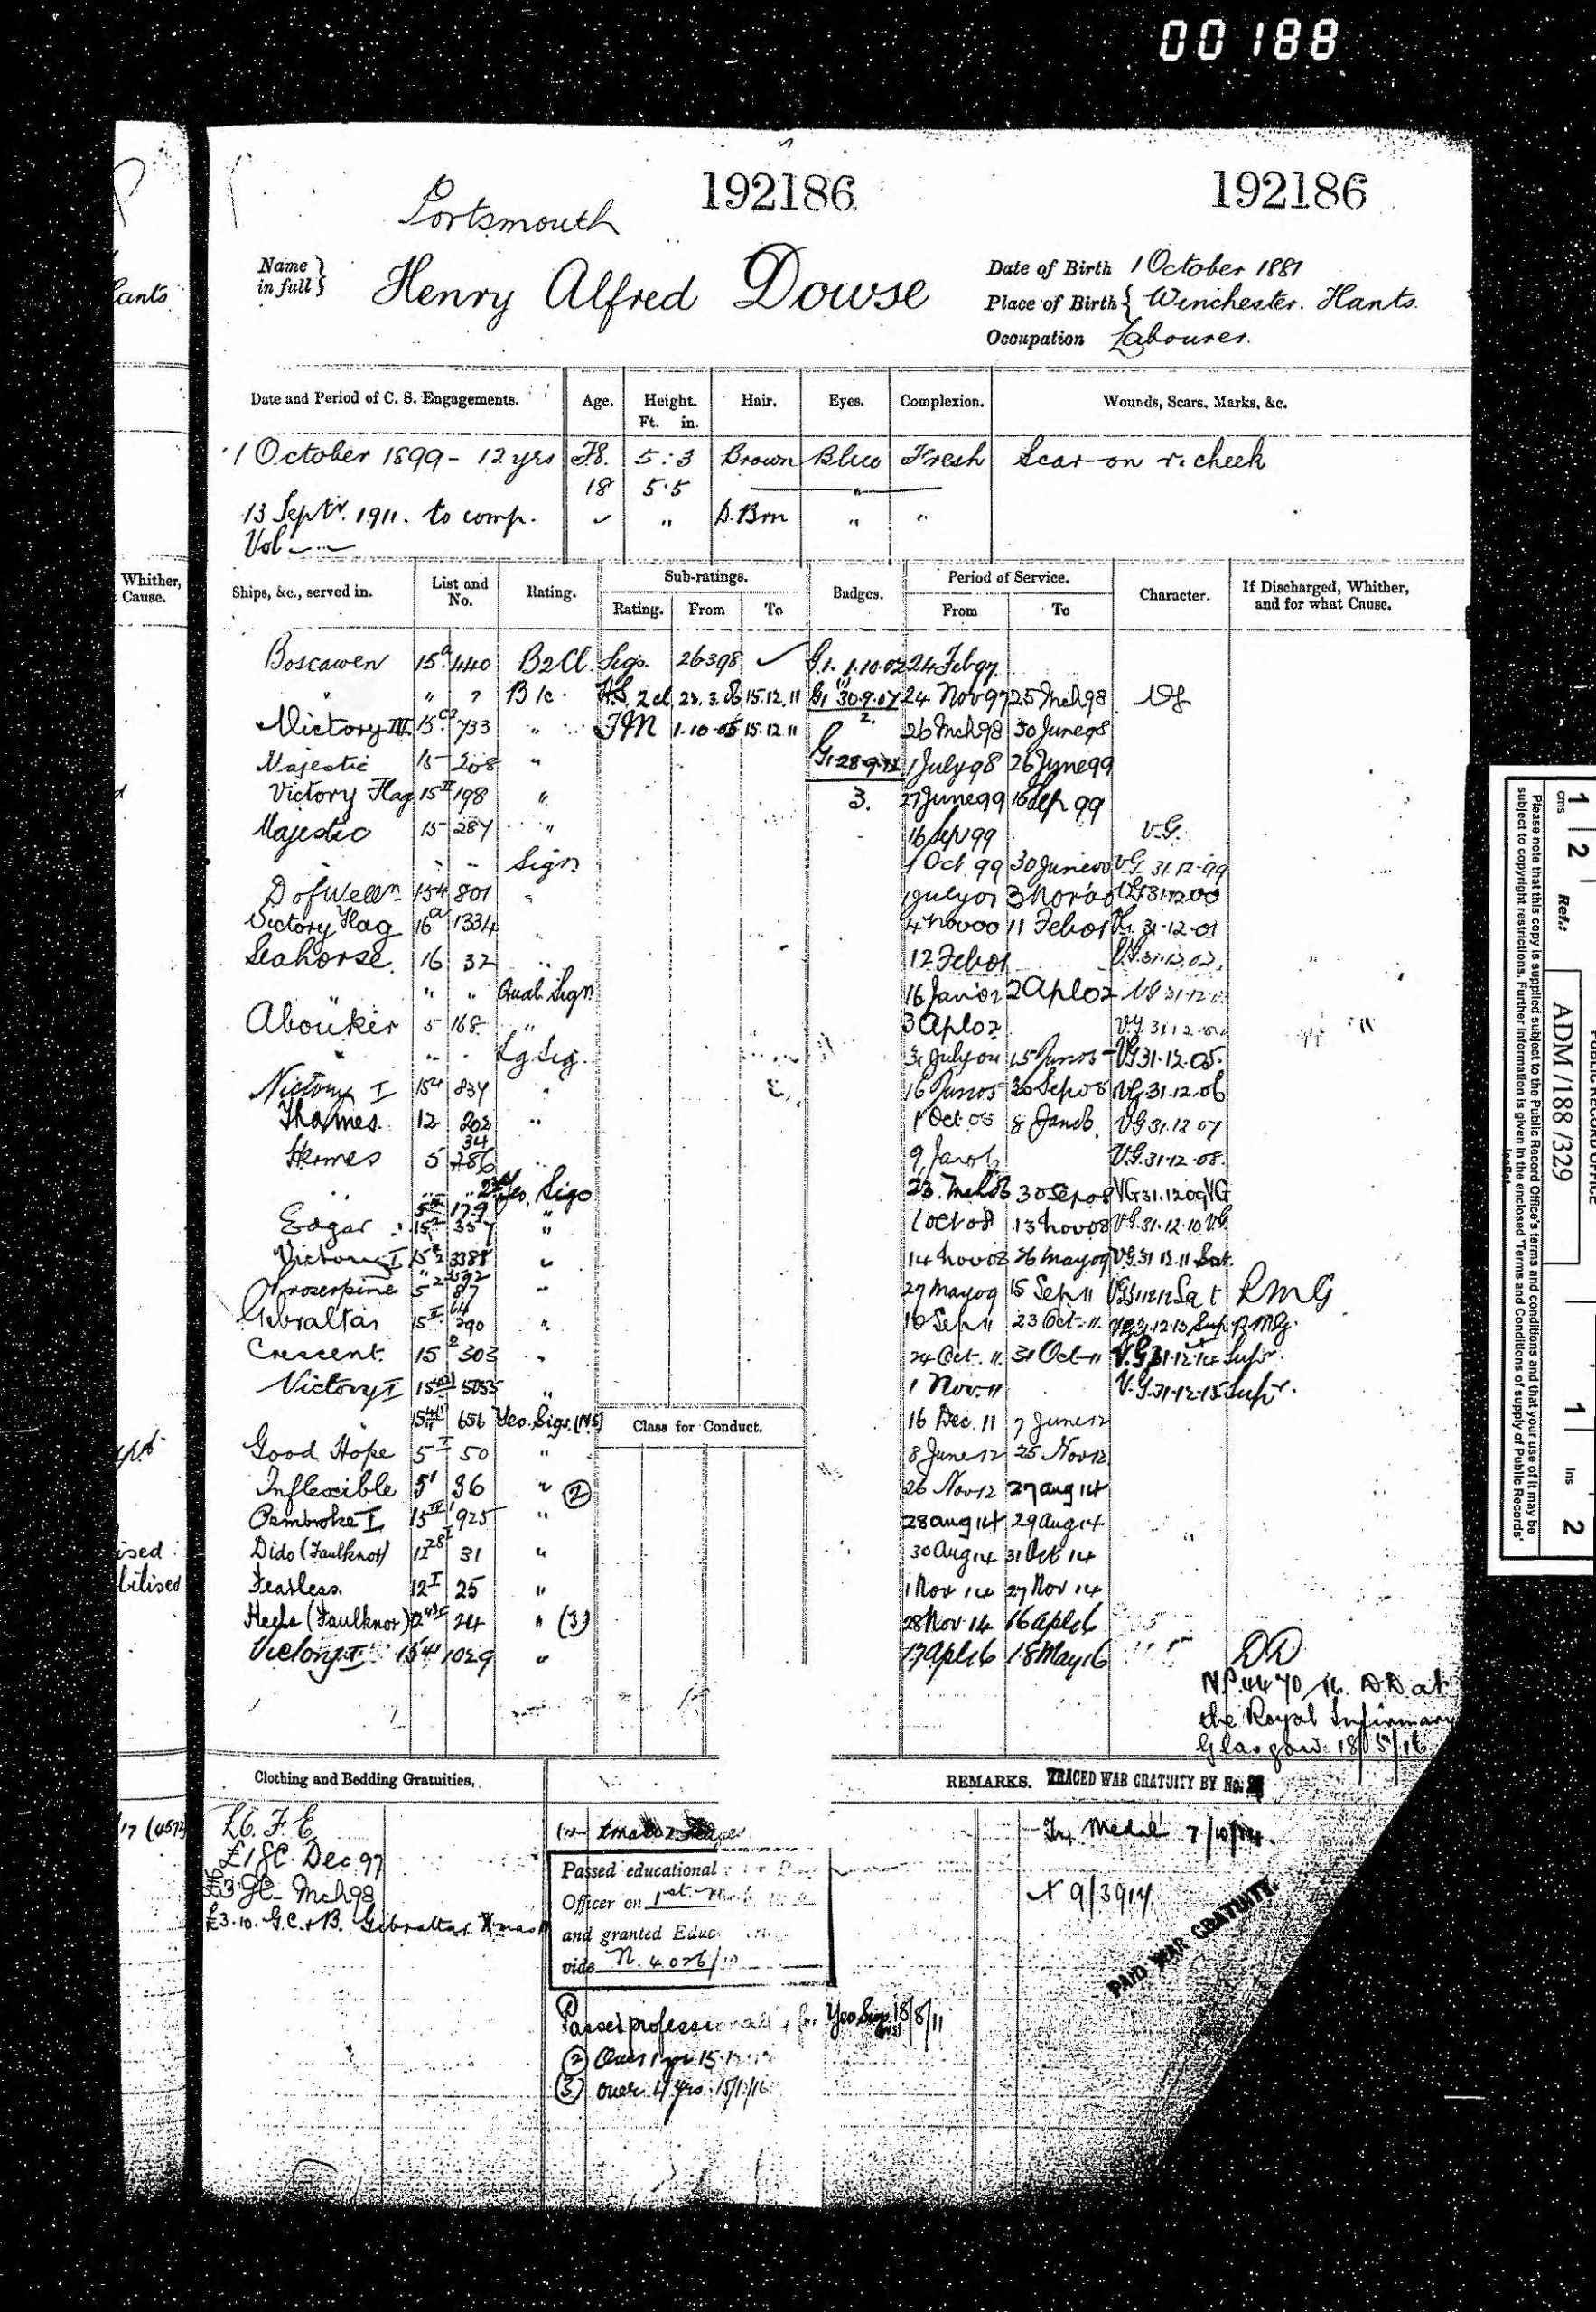 00188
192186 192186
Portsmouth
Name in full } Henry Alfred Dowse
Date of Birth 1 October 1881
Place of Birth { Winchester. Hants.
Occupation Labourer.
Date and Period of C. S. Engagements. Age. Height. Ft. in. Hair. Eyes. Complexion. Wounds, Scars, Marks, &c.
1 October 1899 - 12 yrs 5:3 Brown Blue Fresh Scar on r. cheek
18 5.5 "
13 Septr. 1911. to comp. " D. Brn " "
Vol
Whither, Cause.
Ships, &c., served in. List and No. Rating. Sub-ratings. Rating. From To Badges. Period of Service. From To Character. If Discharged, Whither, and for what Cause.
Boscawen 15a 440 B2Cl. Sigs. 26 3 98 G.1. 1.10.02 24 Feb 97.
" " " B 1c. 2 cl 15.12.11 G1 30.9.07 24 Nov 97 25 Mch 98 VG
2.
Victory III 733 " 1.10.05 15.12.11 26 Mch 98 30 June 98
Majestic 15 208 " 1 July 98 26 June 99
Victory Flag 15 II 198 " 3. 27 June 99 15 Sep 99
Majestic 15 287 " 16 Sep 99 V.G.
" " Sign 1 Oct 99 30 June 00 V.G. 31.12.99
D of Welln 154 801 " 3 Nov 00 VG 31.12.00
Victory Flag 16a 1334 " 4 Nov 00 11 Feb 01 VG. 31-12-01
Seahorse. 16 32 " 12 Feb 01 V.G. 31.12.02.
" " " Qual. Sign 16 Jan 02 2 Apl 02 VG 31.12.
Aboukir 5 168 " 3 Apl 02 V.G. 31.12.
" " " Lg Sig. VG 31.12.05.
Victory I 15 837 " VG 31.12.06
Thames. 12 202 " 8 Jan 06. VG 31.12 07
34
Hermes 5 286 " V.G. 31.12.08.
" " 2nd Yeo. Sigs 30 Sep 08 VG 31.12 09 VG
Edgar 15 357 " 1 Oct 08 13 Nov 08 V.G. 31.12.10 VG
Victory I 3388 " 14 Nov 08 26 May 09 V.G. 31 12.11 Sat.
Proserpine 5 87 " 27 May 09 15 Sep 11 Sat RMG
Gibraltar 15 II 290 " 16 Sep 11 23 Oct. 11. RMG.
Crescent. 15 303 " 24 Oct. 11 31 Oct 11 V.G. 31.12.14 Supr.
Victory I 15 5055 " 1 Nov. 11 V.G. 31.12.15 Supr.
656 Yeo. Sigs. (NS) Class for Conduct. 16 Dec. 11 7 June 12
Good Hope 5 I 50 " 8 June 12 25 Nov 12
Inflexible 5 I 36 " (2) 26 Nov 12 27 Aug 14
Pembroke I 15 925 " 28 Aug 14 29 Aug 14
Dido (Faulknor) 12 31 " 30 Aug 14 31 Oct 14
Fearless. 12 I 25 " 1 Nov 14 27 Nov 14
Hecla (Faulknor) 24 " (3) 28 Nov 14 16 Apl 16
Victory I 15 1029 " 17 Apl 16 18 May 16 DD
N.P. 4470/16. DD at
the Royal Infirmary
Glasgow. 18/5/16
Clothing and Bedding Gratuities. REMARKS. TRACED WAR GRATUITY BY No.
£6. F. E.
£1 GC. Dec 97
£3 GC- Mch 98
£3.10. G.C.+B. Gibraltar Xmas
Passed educational
Officer on 1st
and granted Educ
vide N. 4026/
Passed professionally for Yeo Sigs 18/8/11
(2) Over 1 yr 15.
(3) Over 4 yrs
Medal 7/10/14.
9/3914
PAID WAR GRATUITY.
PUBLIC RECORD OFFICE
cms 1 2 Ref.: ADM/188/329 1 Ins 2
Please note that this copy is supplied subject to the Public Record Office's terms and conditions and that your use of it may be
subject to copyright restrictions. Further information is given in the enclosed 'Terms and Conditions of supply of Public Records'